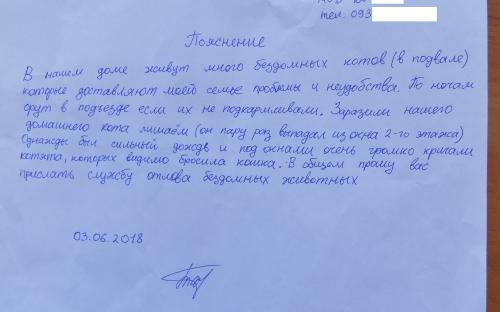 тел. 093
Пояснение
В нашем доме живут много бездомных котов (в подвале)
которые доставляют моей семье проблемы и неудобства. По ночам
орут в подъезде если их не подкармливали. Заразили нашего
домашнего кота лишаём (он пару раз выпадал из окна 2-го этажа)
Однажды был сильный дождь и под окнами очень громко кричали
котята, которых видимо бросила кошка. В общем прошу вас
прислать службу отлова бездомных животных
03.06.2018